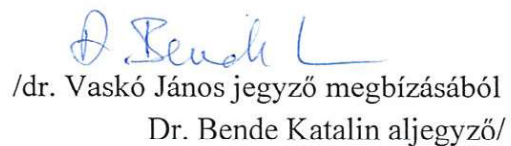 D. Bende K
/dr. Vaskó János jegyző megbízásából
Dr. Bende Katalin aljegyző/